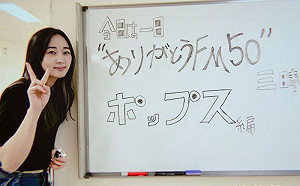 今日は一日
"ありがとうFM50"
三重
ポップス編